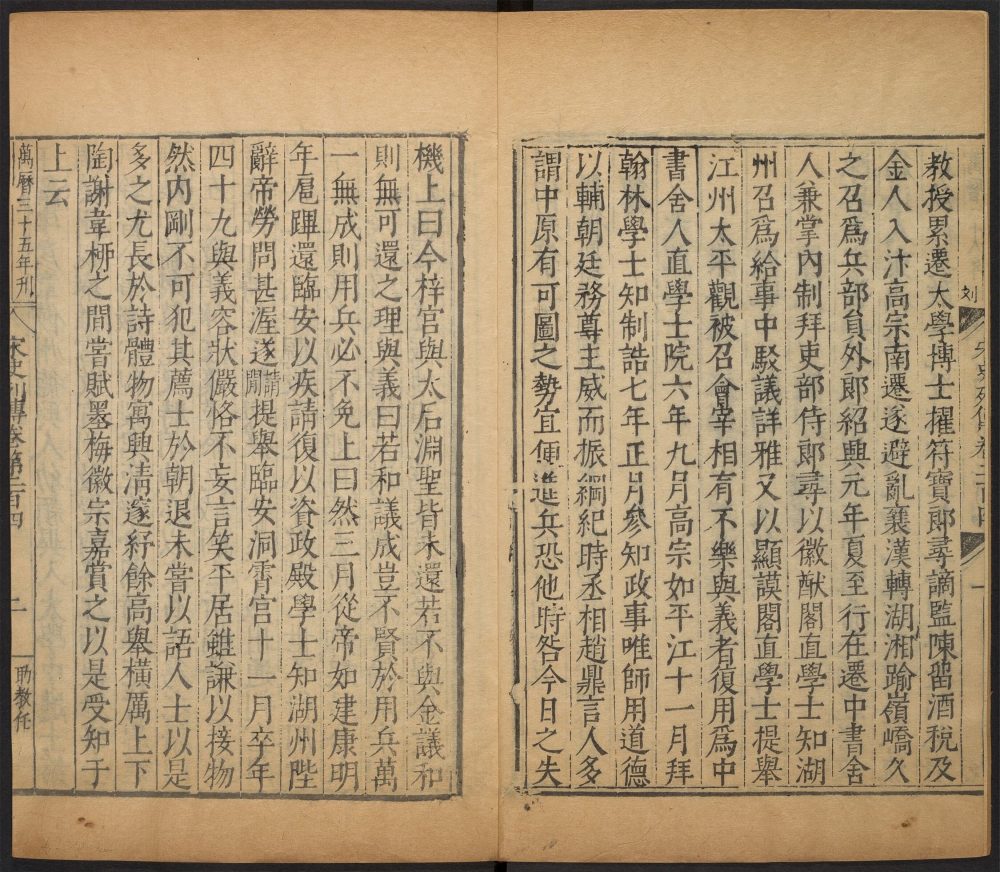 刘
教授累遷太學博士擢符寶郎尋謫監陳留酒稅及
金人入汴高宗南遷遂避亂襄漢轉湖湘踰嶺嶠久
之召爲兵部員外郎紹興元年夏至行在遷中書舍
人兼掌內制拜吏部侍郎尋以徽猷閣直學士知湖
州召爲給事中駁議詳雅又以顯謨閣直學士提舉
江州太平觀被召會宰相有不樂與義者復用爲中
書舍人直學士院六年九月高宗如平江十一月拜
翰林學士知制誥七年正月參知政事唯師用道德
以輔朝廷務尊主威而振綱紀時丞相趙鼎言人多
謂中原有可圖之勢宜便進兵恐他時咎今日之失
機上曰今梓宮與太后淵聖皆未還若不與金議和
則無可還之理與義曰若和議成豈不賢於用兵萬
一無成則用兵必不免上曰然三月從帝如建康明
年扈蹕還臨安以疾請復以資政殿學士知湖州陛
辭帝勞問甚渥遂請閒提舉臨安洞霄宮十一月卒年
四十九與義容狀儼恪不妄言笑平居雖謙以接物
然內剛不可犯其薦士於朝退未嘗以語人士以是
多之尤長於詩體物寓興清邃紆餘高舉橫厲上下
陶謝韋柳之間嘗賦墨梅徽宗嘉賞之以是受知于
上云
萬曆三十五年刊 宋史列傳卷第二百四 二 助教任